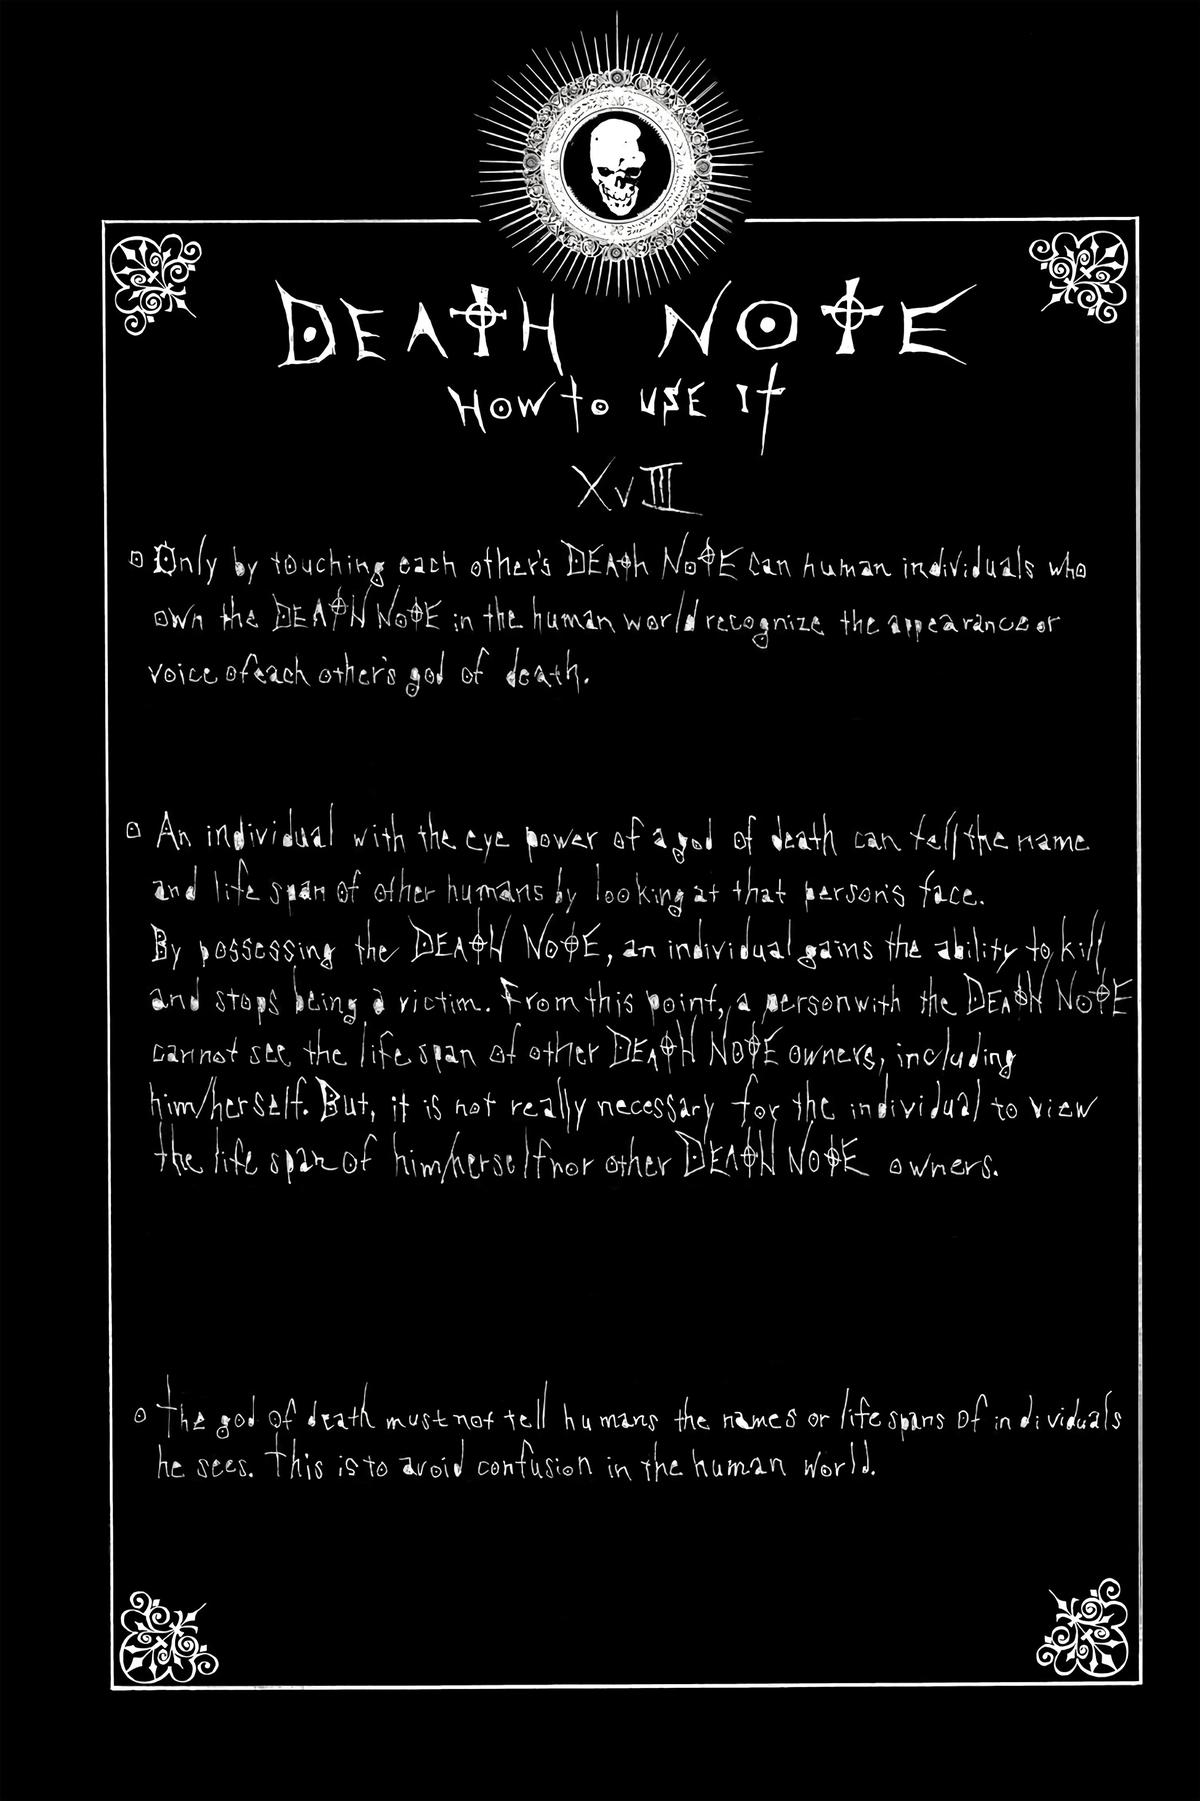 DEATH NOTE
HOW to USE It
XVIII
Only by touching each other's DEATH NOTE can human individuals who
own the DEATH NOTE in the human world recognize the appearance or
voice of each other's god of death.
An individual with the eye power of a god of death can tell the name
and life span of other humans by looking at that person's face.
By possessing the DEATH NOTE, an individual gains the ability to kill
and stops being a victim. From this point, a person with the DEATH NOTE
cannot see the life span of other DEATH NOTE owners, including
him/herself. But, it is not really necessary for the individual to view
the life span of him/herself nor other DEATH NOTE owners.
The god of death must not tell humans the names or life spans of individuals
he sees. This is to avoid confusion in the human world.